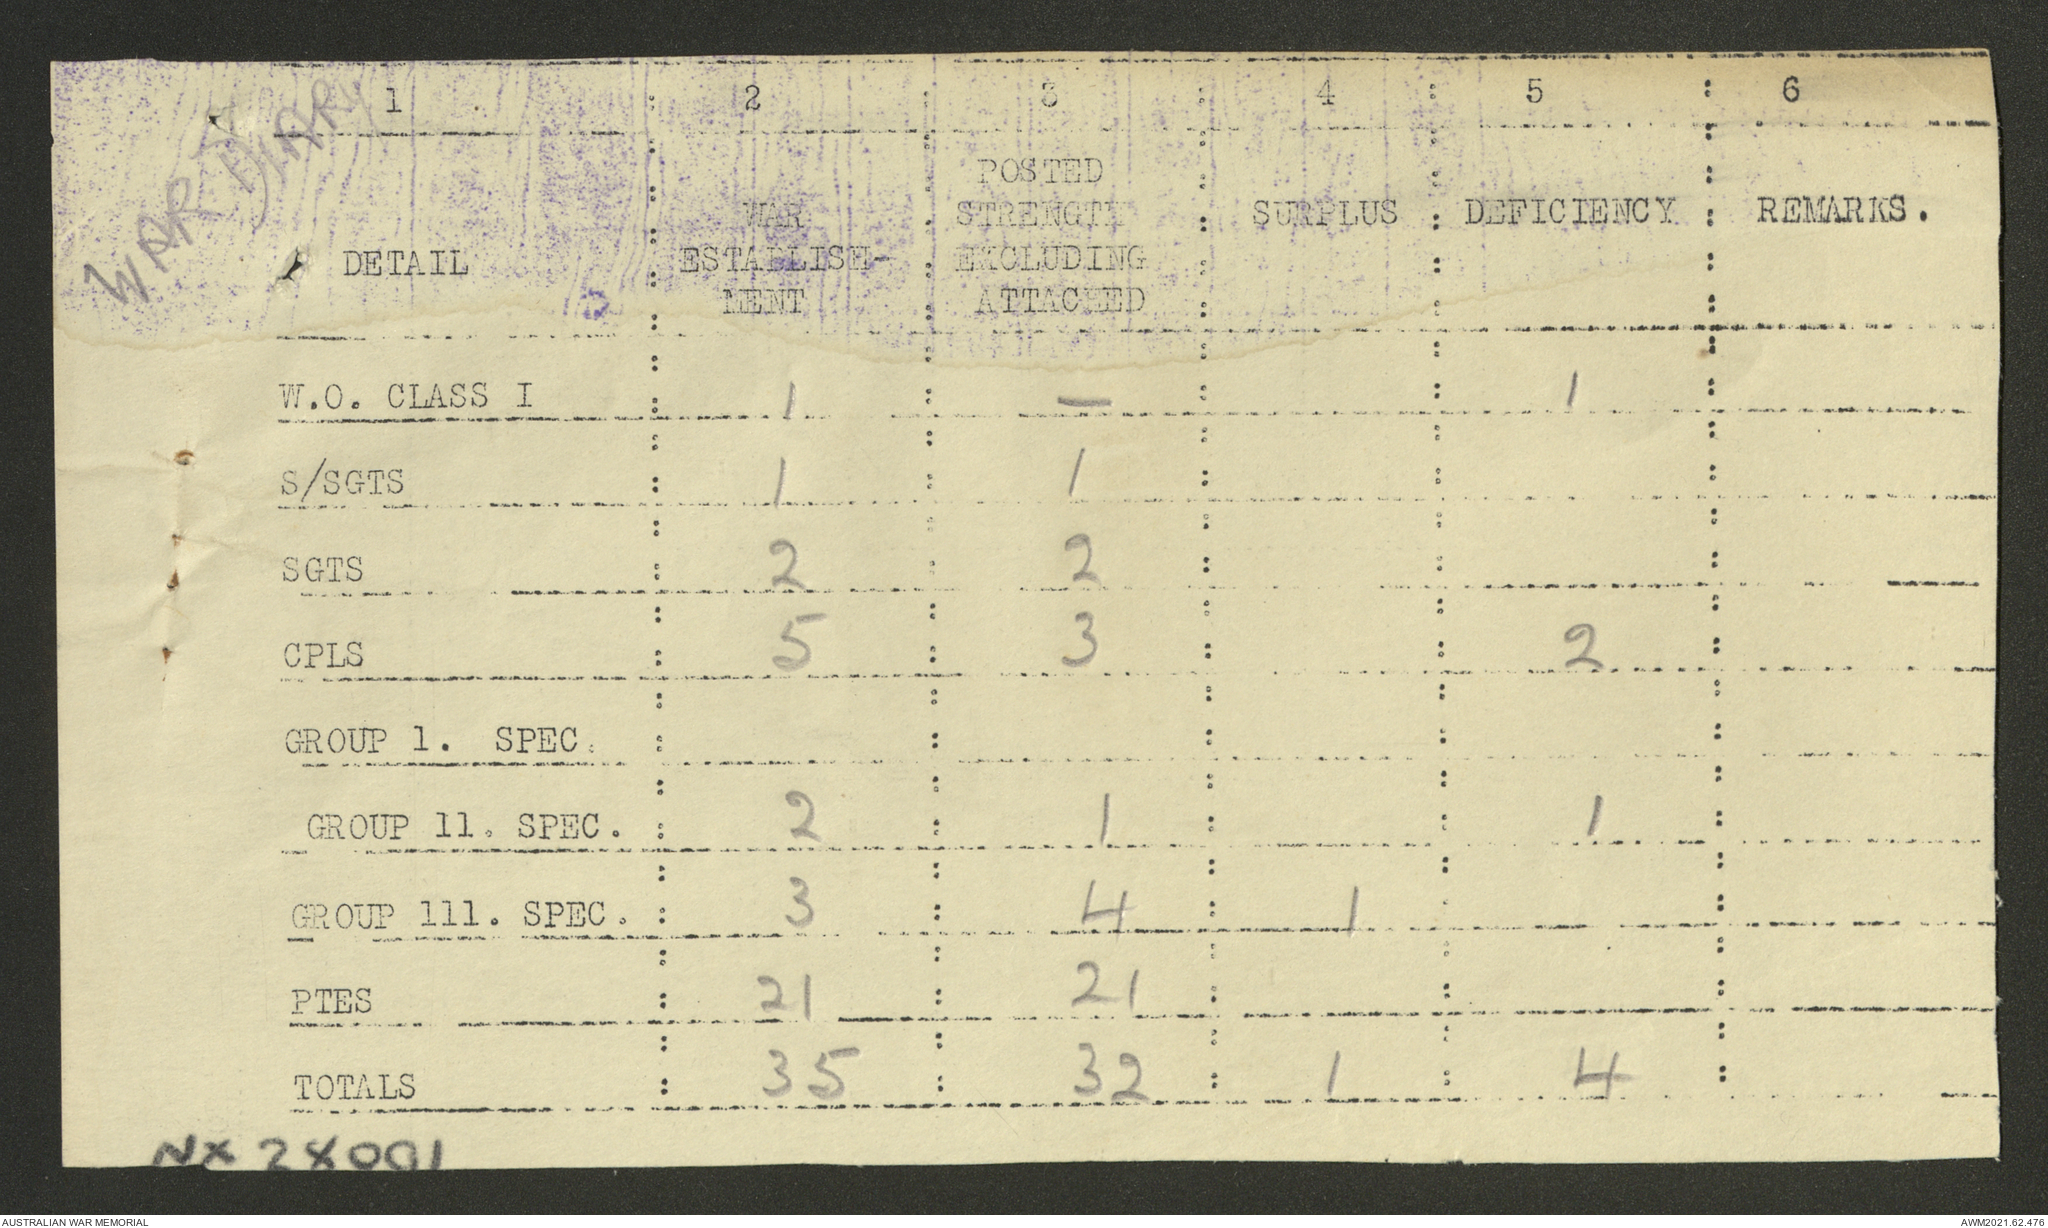 WAR DIARY
1 2 3 4 5 6
DETAIL WAR ESTABLISH- MENT POSTED STRENGTH EXCLUDING ATTACHED SURPLUS DEFICIENCY REMARKS.
W.O. CLASS I 1 — 1
S/SGTS 1 1
SGTS 2 2
CPLS 5 3 2
GROUP 1. SPEC.
GROUP 11. SPEC. 2 1 1
GROUP 111. SPEC. 3 4 1
PTES 21 21
TOTALS 35 32 1 4
NX 28001
AUSTRALIAN WAR MEMORIAL
AWM2021.62.476